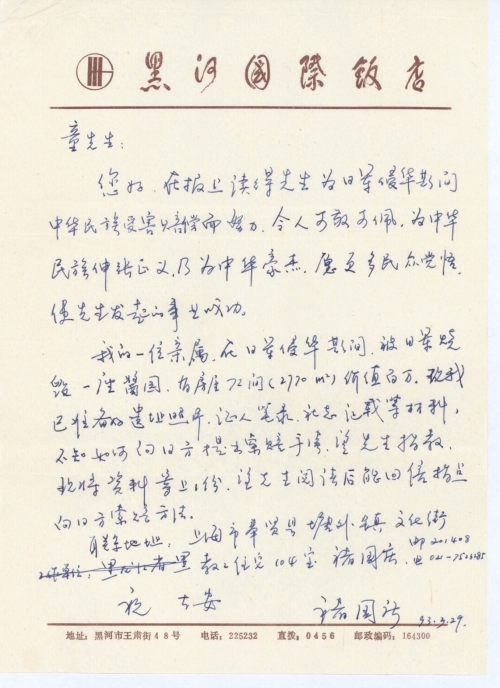 黑河國際飯店
童先生:
您好,在报上读得先生为日军侵华期间
中华民族受害赔偿而努力,令人可敬可佩,为中华
民族伸张正义,乃为中华豪杰,愿更多民众觉悟,
使先生发起的事业成功。
我的一位亲属,在日军侵华期间,被日军烧
毁一座酱园,有房屋72间(2770m²)价值百万,现我
已准备好遗址照片、证人笔录、社志记载等材料,
不知如何向日方提出索赔手续,望先生指教,
现将资料寄上1份,望先生阅读后能回信指点
向日方索赔方法。
联系地址:上海市奉贤县塘外镇文化街
邮201408
工作单位: 教工住宅104室 褚国庆
电021-7503185
祝 大安
褚国庆
93.3.29.
地址:黑河市王肃街48号 电话:225232 直拨:0456 邮政编码:164300